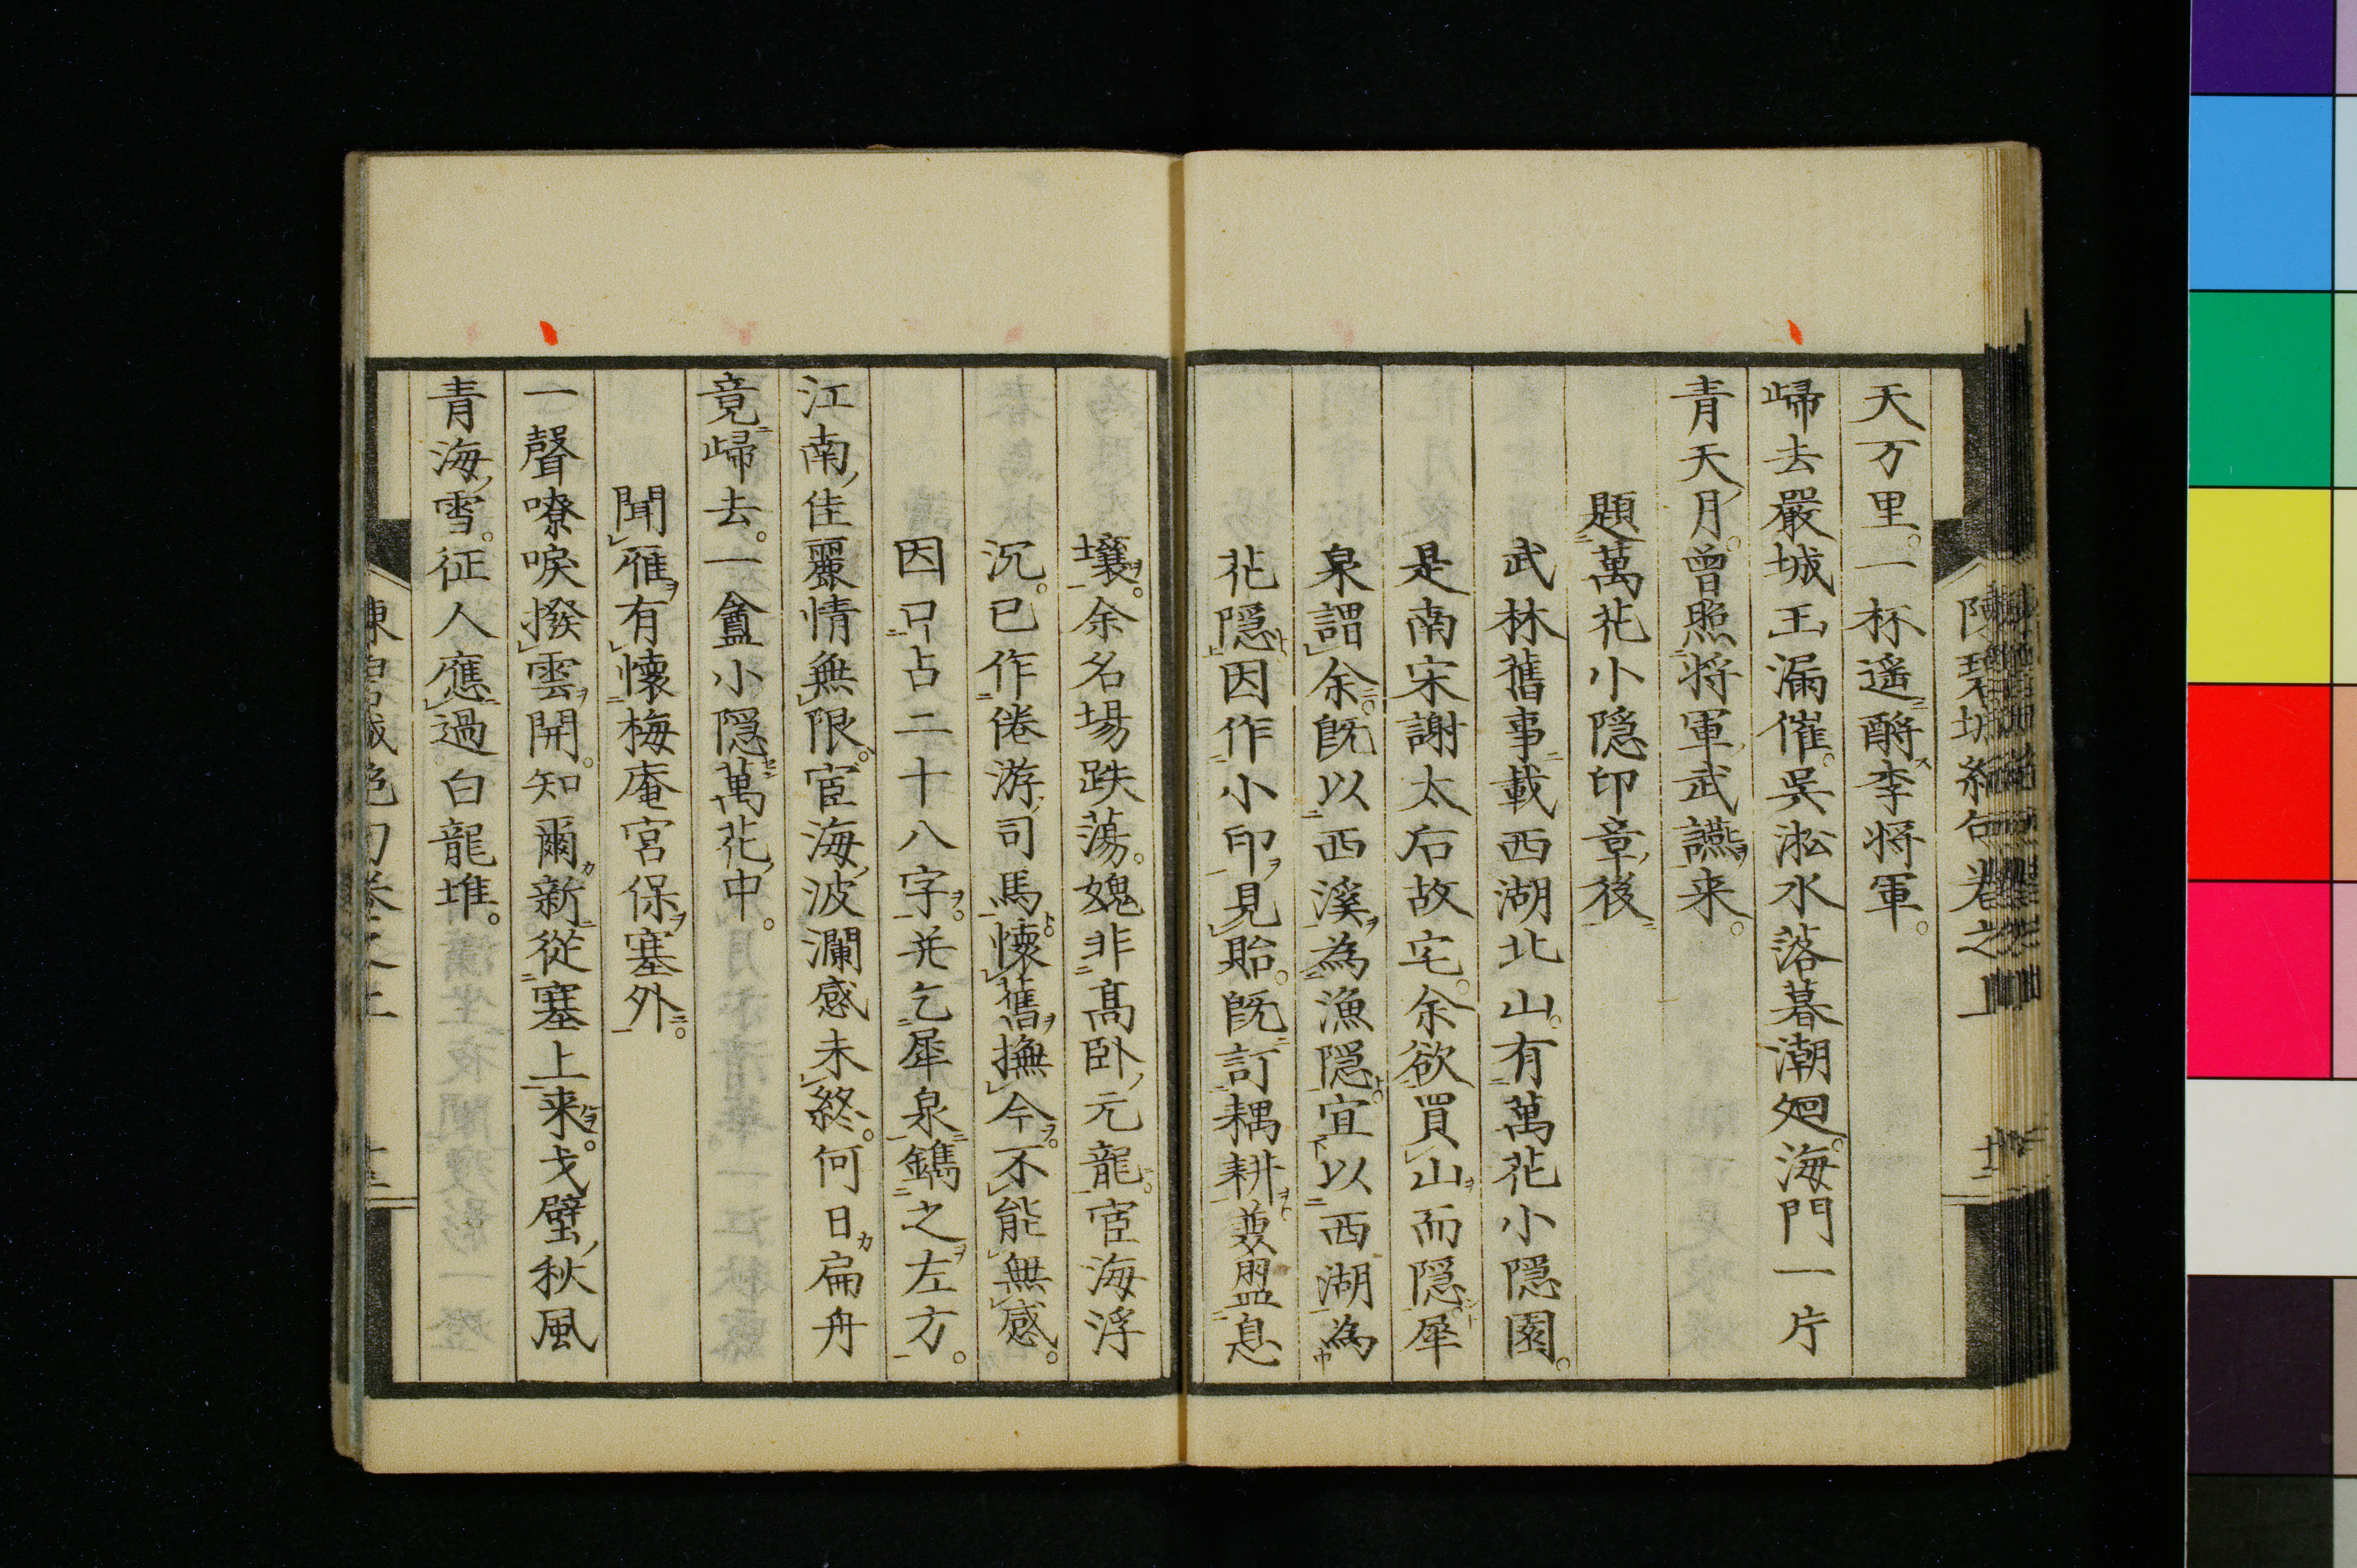 天万里。一杯遥酹李将軍。
歸去嚴城玉漏催。呉淞水落暮潮廻。海門一片
青天月。曾照将軍武讌来。
題萬花小隠印章後
武林舊事載西湖北山。有萬花小隠園。
是南宋謝太后故宅。余欲買山而隠。犀
泉謂余。既以西溪為漁隠。宜以西湖為
花隠。因作小印見貽。既訂耦耕。爰盟息
壤。余名場跌蕩。媿非髙卧元龍。宦海浮
沉。已作倦游司馬。懐舊撫今。不能無感。
因口占二十八字。并乞犀泉鐫之左方。
江南佳麗情無限。宦海波瀾感未終。何日扁舟
竟歸去。一龕小隠萬花中。
聞雁有懐梅庵宮保塞外
一聲嘹唳撥雲開。知爾新従塞上来。戈壁秋風
青海雪。征人應過白龍堆。